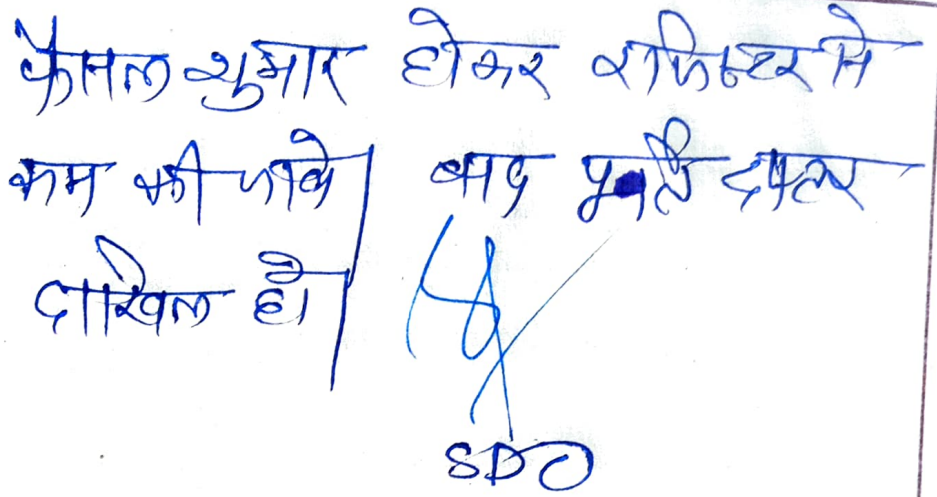 फैसल शुमार होकर रजिस्टर से
कम की जावे। बाद पूर्ति दफ्तर
दाखिल हो।
SDO